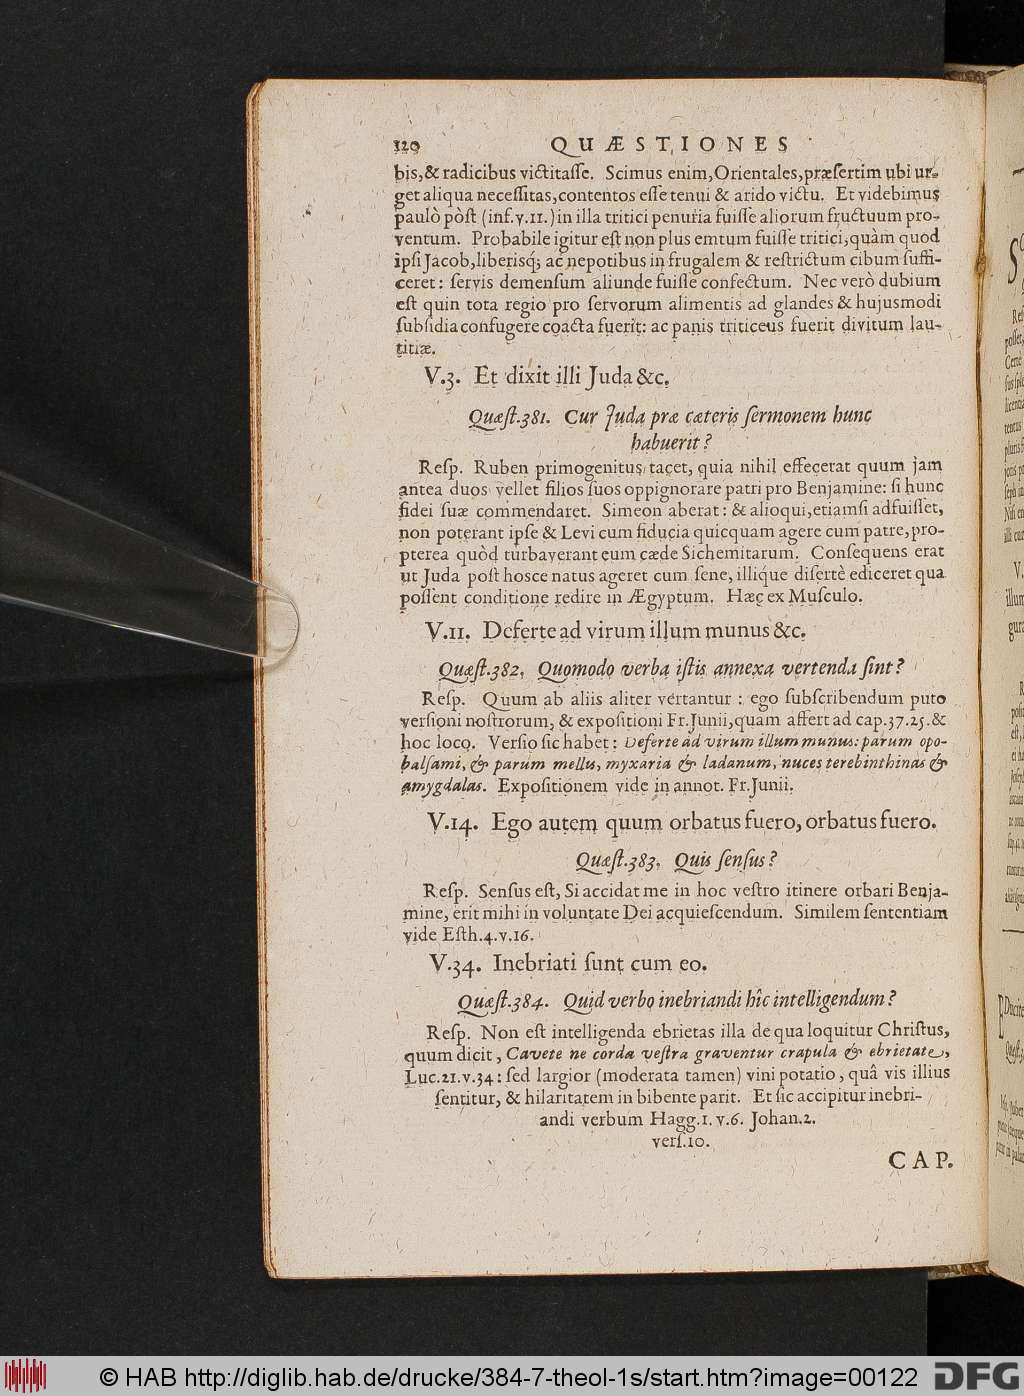 120 QUÆSTIONES
bis,& radicibus victitaſſe. Scimus enim,Orientales,præſertim ubi ur-
get aliqua neceſſitas,contentos eſſe tenui & arido victu. Et videbimus
paulò pòſt (inf.v.11.) in illa tritici penuria fuiſſe aliorum fructuum pro-
ventum. Probabile igitur eſt non plus emtum fuiſſe tritici,quàm quod
ipſi Jacob,liberisq́; ac nepotibus in frugalem & reſtrictum cibum ſuffi-
ceret: ſervis demenſum aliunde fuiſſe confectum. Nec verò dubium
eſt quin tota regio pro ſervorum alimentis ad glandes & hujusmodi
ſubſidia confugere coacta fuerit: ac panis triticeus fuerit divitum lau-
titiæ.
V.3. Et dixit illi Juda &c.
Quæſt.381. Cur Juda præ cæteris ſermonem hunc
habuerit?
Reſp. Ruben primogenitus tacet, quia nihil effecerat quum jam
antea duos vellet filios ſuos oppignorare patri pro Benjamine: ſi hunc
fidei ſuæ commendaret. Simeon aberat: & alioqui,etiamſi adfuiſſet,
non poterant ipſe & Levi cum fiducia quicquam agere cum patre,pro-
pterea quòd turbaverant eum cæde Sichemitarum. Conſequens erat
ut Juda poſt hosce natus ageret cum ſene, illiq́ue diſertè ediceret qua
poſſent conditione redire in Ægyptum. Hæc ex Muſculo.
V.11. Deferte ad virum illum munus &c.
Quæſt.382. Quomodo verba iſtis annexa vertenda ſint?
Reſp. Quum ab aliis aliter vertantur : ego ſubſcribendum puto
verſioni noſtrorum, & expoſitioni Fr.Junii,quam affert ad cap.37.25.&
hoc loco. Verſio ſic habet: Deferte ad virum illum munus: parum opo-
balſami, & parum mellis, myxaria & ladanum, nuces terebinthinas &
amygdalas. Expoſitionem vide in annot. Fr.Junii.
V.14. Ego autem quum orbatus fuero, orbatus fuero.
Quæſt.383. Quis ſenſus?
Reſp. Senſus eſt, Si accidat me in hoc veſtro itinere orbari Benja-
mine, erit mihi in voluntate Dei acquieſcendum. Similem ſententiam
vide Eſth.4.v.16.
V.34. Inebriati ſunt cum eo.
Quæſt.384. Quid verbo inebriandi hîc intelligendum?
Reſp. Non eſt intelligenda ebrietas illa de qua loquitur Chriſtus,
quum dicit, Cavete ne corda veſtra graventur crapula & ebrietate,
Luc.21.v.34: ſed largior (moderata tamen) vini potatio, quâ vis illius
ſentitur, & hilaritatem in bibente parit. Et ſic accipitur inebri-
andi verbum Hagg.1.v.6. Johan.2.
verſ.10.
CAP.
© HAB http://diglib.hab.de/drucke/384-7-theol-1s/start.htm?image=00122
DFG